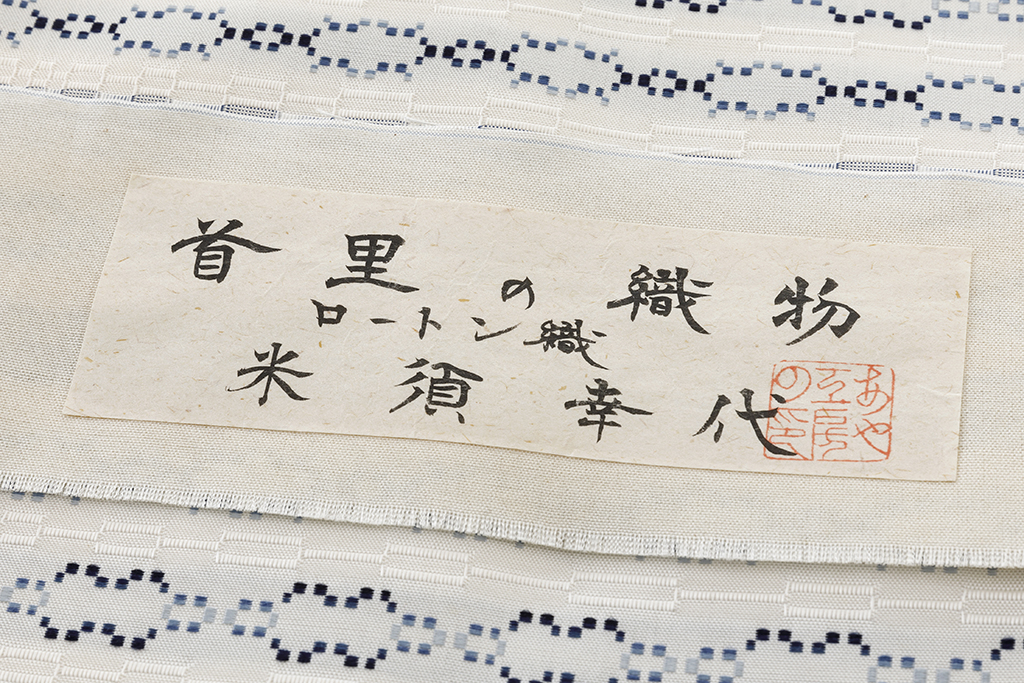 首里の織物
ロートン織
米須幸代
あや
の印